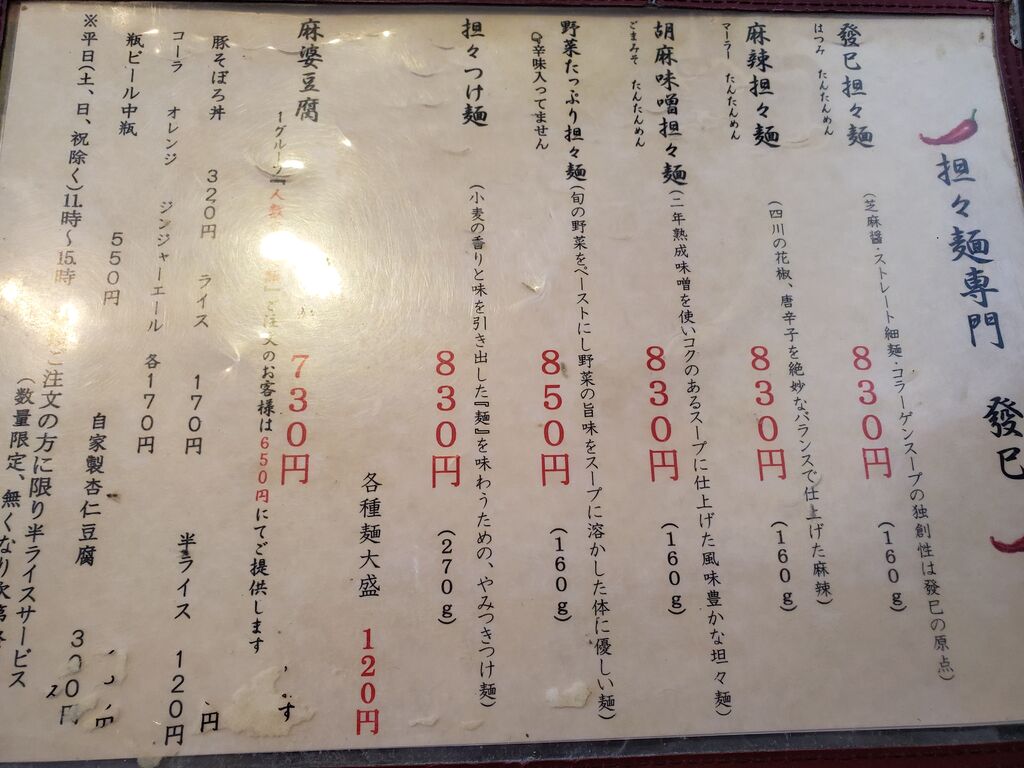 担々麺専門　發巳
發巳担々麺
はつみ　たんたんめん
（芝麻醤・ストレート細麺・コラーゲンスープの独創性は發巳の原点）
830円　（160g）
麻辣担々麺
マーラー　たんたんめん
（四川の花椒、唐辛子を絶妙なバランスで仕上げた麻辣）
830円　（160g）
胡麻味噌担々麺
ごまみそ　たんたんめん
（二年熟成味噌を使いコクのあるスープに仕上げた風味豊かな坦々麺）
830円　（160g）
野菜たっぷり担々麺
辛味入ってません
（旬の野菜をペーストにし野菜の旨味をスープに溶かした体に優しい麺）
850円　（160g）
担々つけ麺
（小麦の香りと味を引き出した『麺』を味わうための、やみつきつけ麺）
830円　（270g）
各種麺大盛　120円
麻婆豆腐　730円
1グループ『人数
のお客様は650円にてご提供します
豚そぼろ丼　320円　ライス　170円　半ライス　120円
コーラ　オレンジ　ジンジャーエール　各170円
瓶ビール中瓶　550円　自家製杏仁豆腐　300円
※平日（土、日、祝除く）11.時～15.時
ご注文の方に限り半ライスサービス
（数量限定、無くなり次第